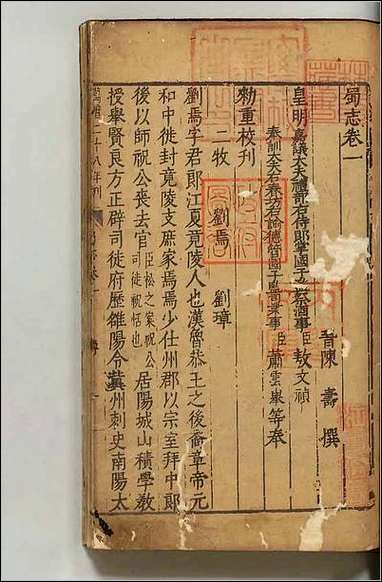 蜀志卷一
晉陳壽撰
皇明嘉議大夫禮部右侍郎掌國子監祭酒事臣敖文禎
奉訓大夫右春坊右諭德管國子監司業事臣蕭雲舉等奉
勑重校刊
二牧 劉焉 劉璋
劉焉字君郎江夏竟陵人也漢魯恭王之後裔章帝元
和中徙封竟陵支庶家焉焉少仕州郡以宗室拜中郎
後以師祝公喪去官臣松之案祝公司徒祝恬也居陽城山積學教
授舉賢良方正辟司徒府歷雒陽令冀州刺史南陽太
萬曆二十八年刊